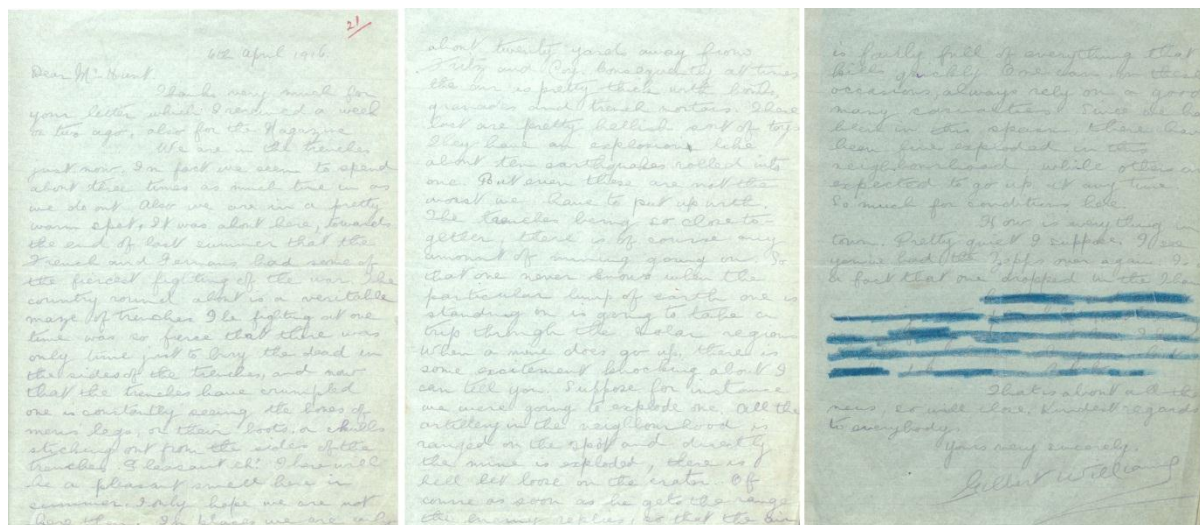 21
6th April 1916.
Dear Mr Hunt
Thanks very much for
your letter which I received a week
or two ago, also for the Magazine
We are in the trenches
just now. In fact we seem to spend
about three times as much time in as
we do out. Also we are in a pretty
warm spot. It was about here, towards
the end of last summer that the
French and Germans had some of
the fiercest fighting of the war. The
country round about is a veritable
maze of trenches. The fighting at one
time was so fierce that there was
only time just to bury the dead in
the sides of the trenches, and now
that the trenches have crumpled
one is constantly seeing the bones of
mens legs, or their boots, or skulls
sticking out from the sides of the
trenches. Pleasant eh! There will
be a pleasant smell here in
summer. I only hope we are not
here then. In places we are
about twenty yards away from
Fritz and Coy. Consequently at times
the air is pretty thick with bombs,
grenades and trench mortars. These
last are pretty hellish sort of toys
They have an explosion, like
about ten earthquakes rolled into
one. But even these are not the
worst we have to put up with.
The trenches being so close to-
gether, there is of course any
amount of mining going on. So
that one never knows when the
particular lump of earth one is
standing on is going to take a
trip through the solar regions
When a mine does go up, there is
some excitement knocking about I
can tell you. Suppose for instance
we were going to explode one. All the
artillery in the neighbourhood is
ranged on the spot and directly
the mine is exploded, there is
hell let loose on the crater. Of
course as soon as he gets the range
the enemy replies, so that the air
is fairly full of everything that
kills quickly. One can, on these
occasions, always rely on a good
many casualties. Since we have
been in this spasm there have
been five exploded in this
neighbourhood while others are
expected to go up at any time.
So much for conditions here.
How is everything in
town. Pretty quiet I suppose. I see
you've had the Zepps over again. Is
a fact that one dropped in the
That is about all the
news, so will close. Kindest regards
to everybody.
Yours very sincerely.
Gilbert Williams